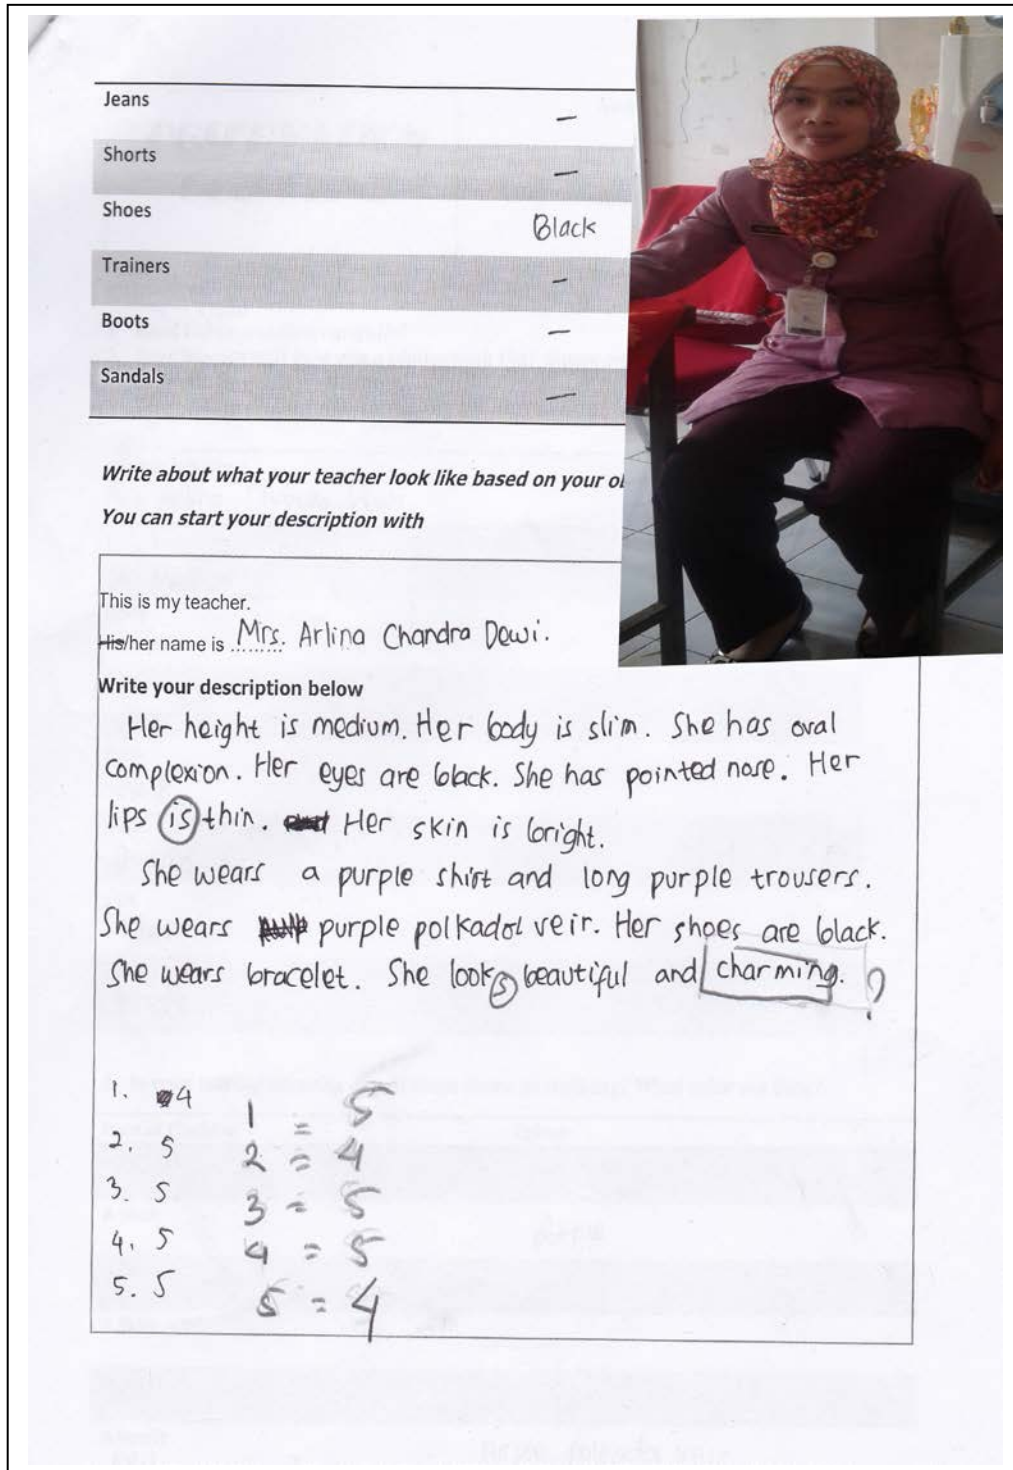 Jeans –
Shorts –
Shoes Black
Trainers –
Boots –
Sandals –
Write about what your teacher look like based on your ol
You can start your description with
This is my teacher.
His/her name is ......... Mrs. Arlina Chandra Dewi.
Write your description below
Her height is medium. Her body is slim. She has oval
complexion. Her eyes are black. She has pointed nose. Her
lips is thin. Her skin is bright.
She wears a purple shirt and long purple trousers.
She wears purple polkadot veir. Her shoes are black.
She wears bracelet. She looks beautiful and charming. ?
1. 4 1 = 5
2. 5 2 = 4
3. 5 3 = 5
4. 5 4 = 5
5. 5 5 = 4